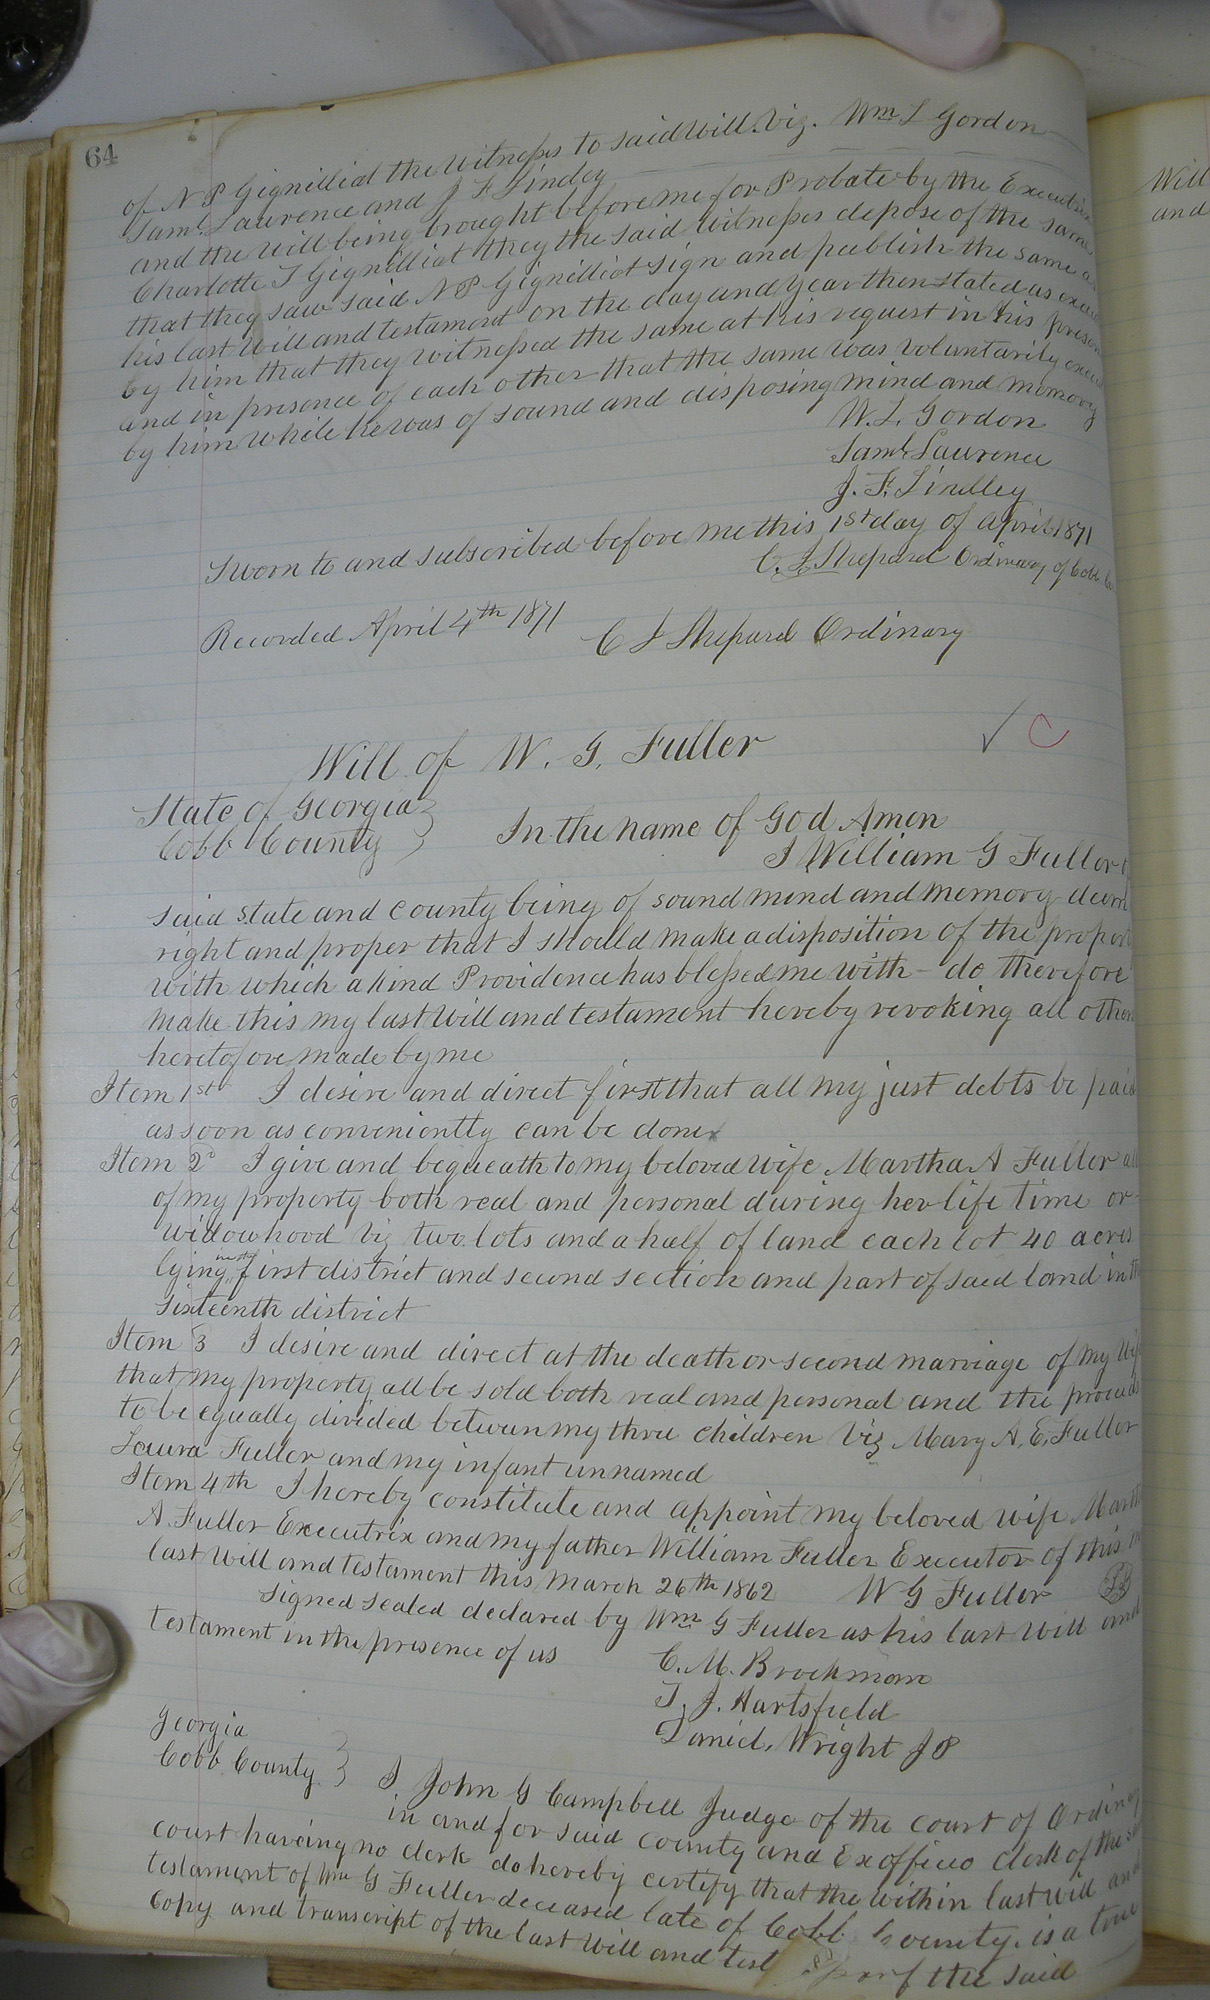 64
of N P Gignilliat the witnesses to said will. viz. Wm L Gordon
Saml Laurence and J F Lindley
and the will being brought before me for Probate by the Executrix
Charlotte T Gignilliat they the said witnesses depose of the same
that they saw said N P Gignilliat sign and publish the same as
his last will and testament on the day and year then stated as
by him that they witnessed the same at his request in his
and in presence of each other that the same was voluntarily
by him while he was of sound and disposing mind and memory
W. L. Gordon
Saml Laurence
J. F. Lindley
Sworn to and subscribed before me this 1st day of April 1871
C. J. Shepard Ordinary of Cobb Co
Recorded April 4th 1871
C J Shepard Ordinary
Will of W. G. Fuller
C
State of Georgia
Cobb County
In the name of God Amen
I William G Fuller
said state and county being of sound mind and memory deem
right and proper that I should make a disposition of the
with which a kind Providence has blessed me with - do therefore
make this my last will and testament hereby revoking all
heretofore made by me
Item 1st I desire and direct first that all my just debts be paid
as soon as conveniently can be done
Item 2d I give and bequeath to my beloved wife Martha A Fuller all
of my property both real and personal during her life time or
widowhood viz two lots and a half of land each lot 40 acres
lying in the first district and second section and part of said land in the
sixteenth district
Item 3 I desire and direct at the death or second marriage of my
that my property all be sold both real and personal and the proceeds
to be equally divided between my three children viz Mary A. E. Fuller
Laura Fuller and my infant unnamed
Item 4th I hereby constitute and appoint my beloved wife
A. Fuller Executrix and my father William Fuller Executor of this
last will and testament this March 26th 1862 W G Fuller
Signed sealed declared by Wm G Fuller as his last will and
testament in the presence of us
C. M. Brockman
T. J. Hartsfield
Daniel Wright J P
Georgia
Cobb County
I John G Campbell Judge of the court of
in and for said county and Exofficio clerk of the
court haveing no clerk do hereby certify that the within last will and
testament of Wm G Fuller deceased late of Cobb County. is a true
Copy and transcript of the last will and of the said
Will
and